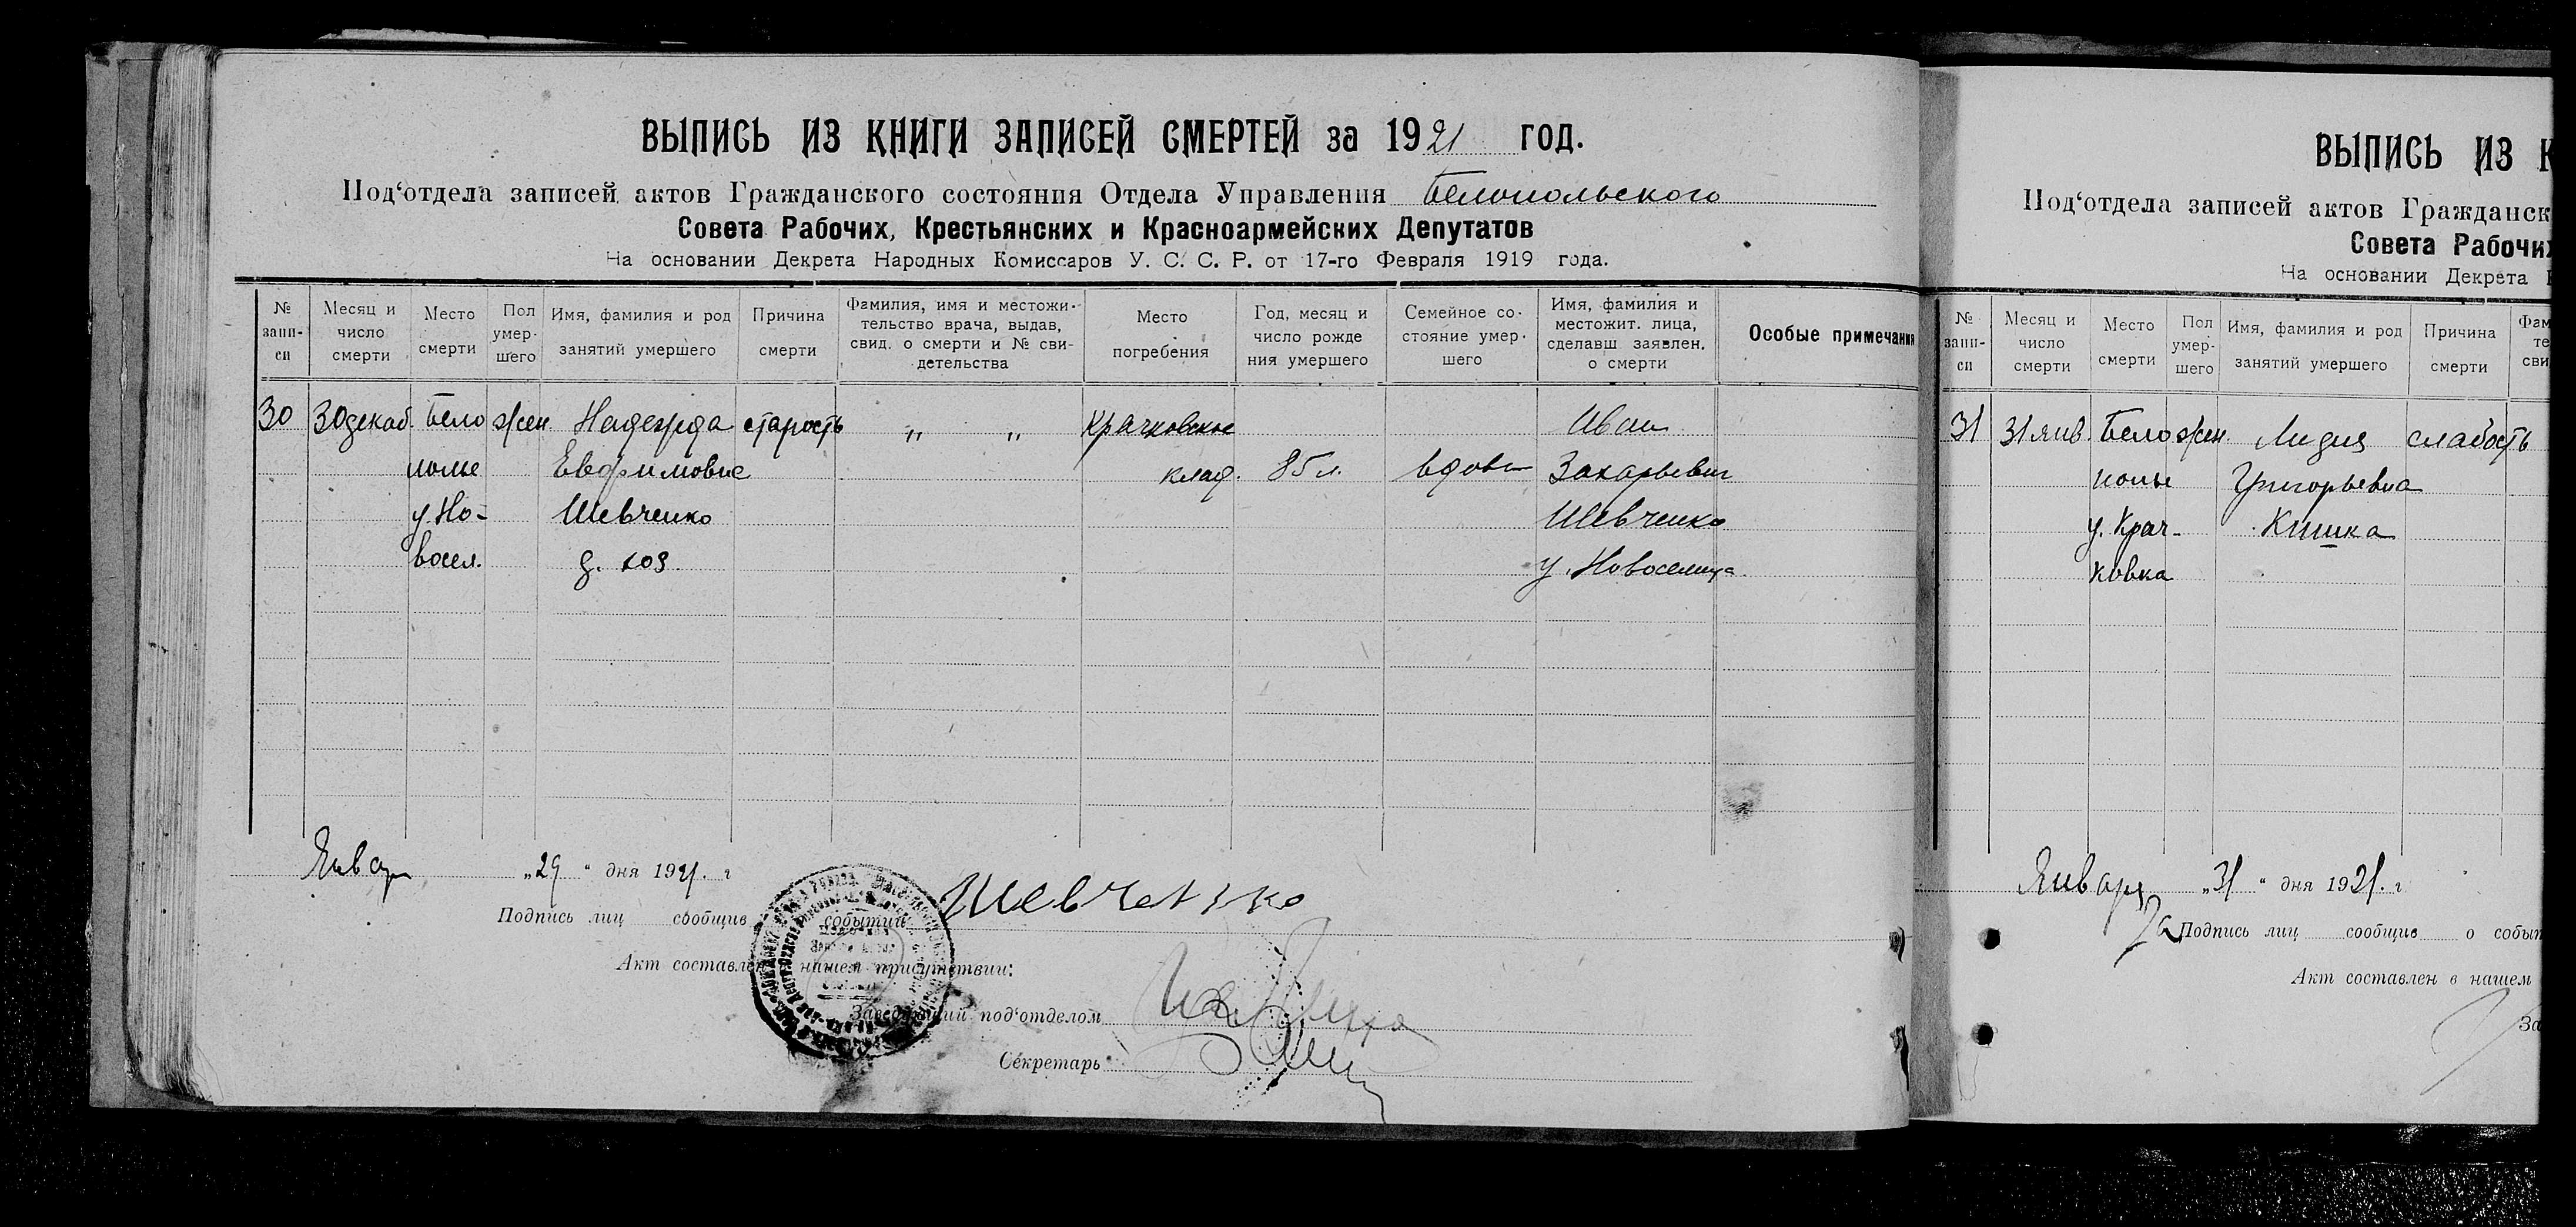 ВЫПИСЬ ИЗ КНИГИ ЗАПИСЕЙ СМЕРТЕЙ за 1921 год.
Под‘отдела записей актов Гражданского состояния Отдела Управления Белопольского
Совета Рабочих, Крестьянских и Красноармейских Депутатов
На основании Декрета Народных Комиссаров У. С. С. Р. от 17-го Февраля 1919 года.
№ запи-си
Месяц и число смерти
Место смерти
Пол умер-шего
Имя, фамилия и род занятий умершего
Причина смерти
Фамилия, имя и местожи-тельство врача, выдав, свид. о смерти и № сви-детельства
Место погребения
Год, месяц и число рожде ния умершего
Семейное со-стояние умер-шего
Имя, фамилия и местожит. лица, сделавш. заявлен. о смерти
Особые примечания
30 30 декаб. Бело жен Надежда старость „ „ Крачковское Иван
полье Евфимовна клад. 85 л. вдова Захарьевич
у. Но- Шевченко Шевченко
восел. д. хоз. у. Новоселица
Январ „29“ дня 1921. г
Подпись лиц сообщив событии Шевченко
Акт составлен нашем присутствии:
Заведующий под‘отделом
Секретарь
ВЫПИСЬ ИЗ К
Под‘отдела записей актов Гражданск
Совета Рабочих
На основании Декрета
№ запи-си
Месяц и число смерти
Место смерти
Пол умер-шего
Имя, фамилия и род занятий умершего
Причина смерти
Фам
те
сви
31 31 янв. Бело жен. Лидия слабость
полье Григорьевна
у. Крач- Кишка
ковка
Января „31“ дня 1921. г
За Подпись лиц сообщив о событ
Акт составлен в нашем
За